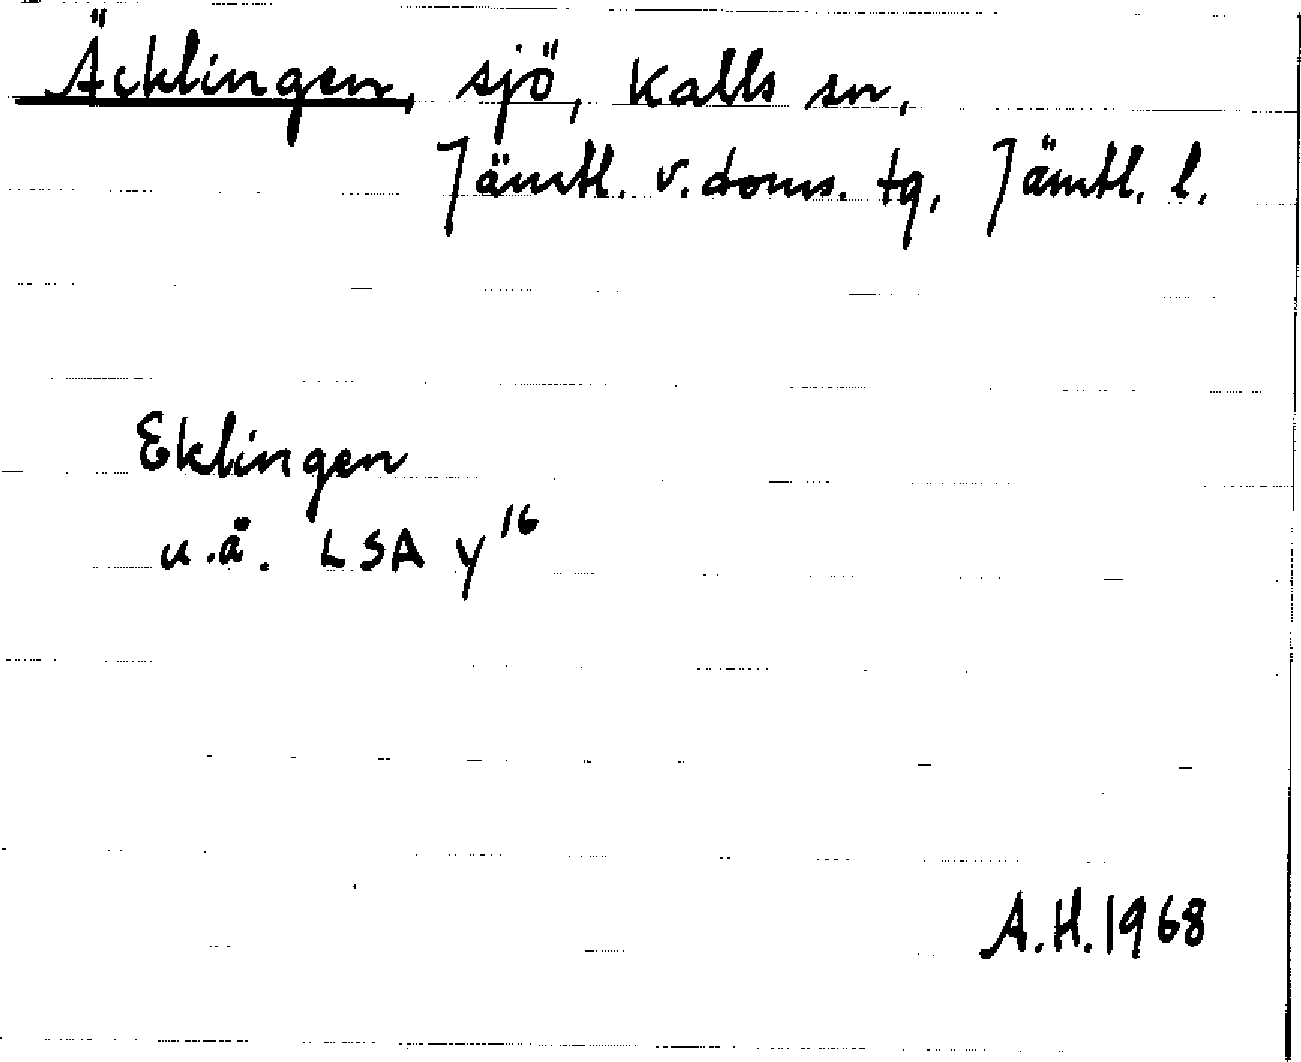 Äcklingen, sjö, Kalls sn,
Jämtl. v. doms. tg, Jämtl. l.
Eklingen
u.ä. LSA y16
A.H. 1968